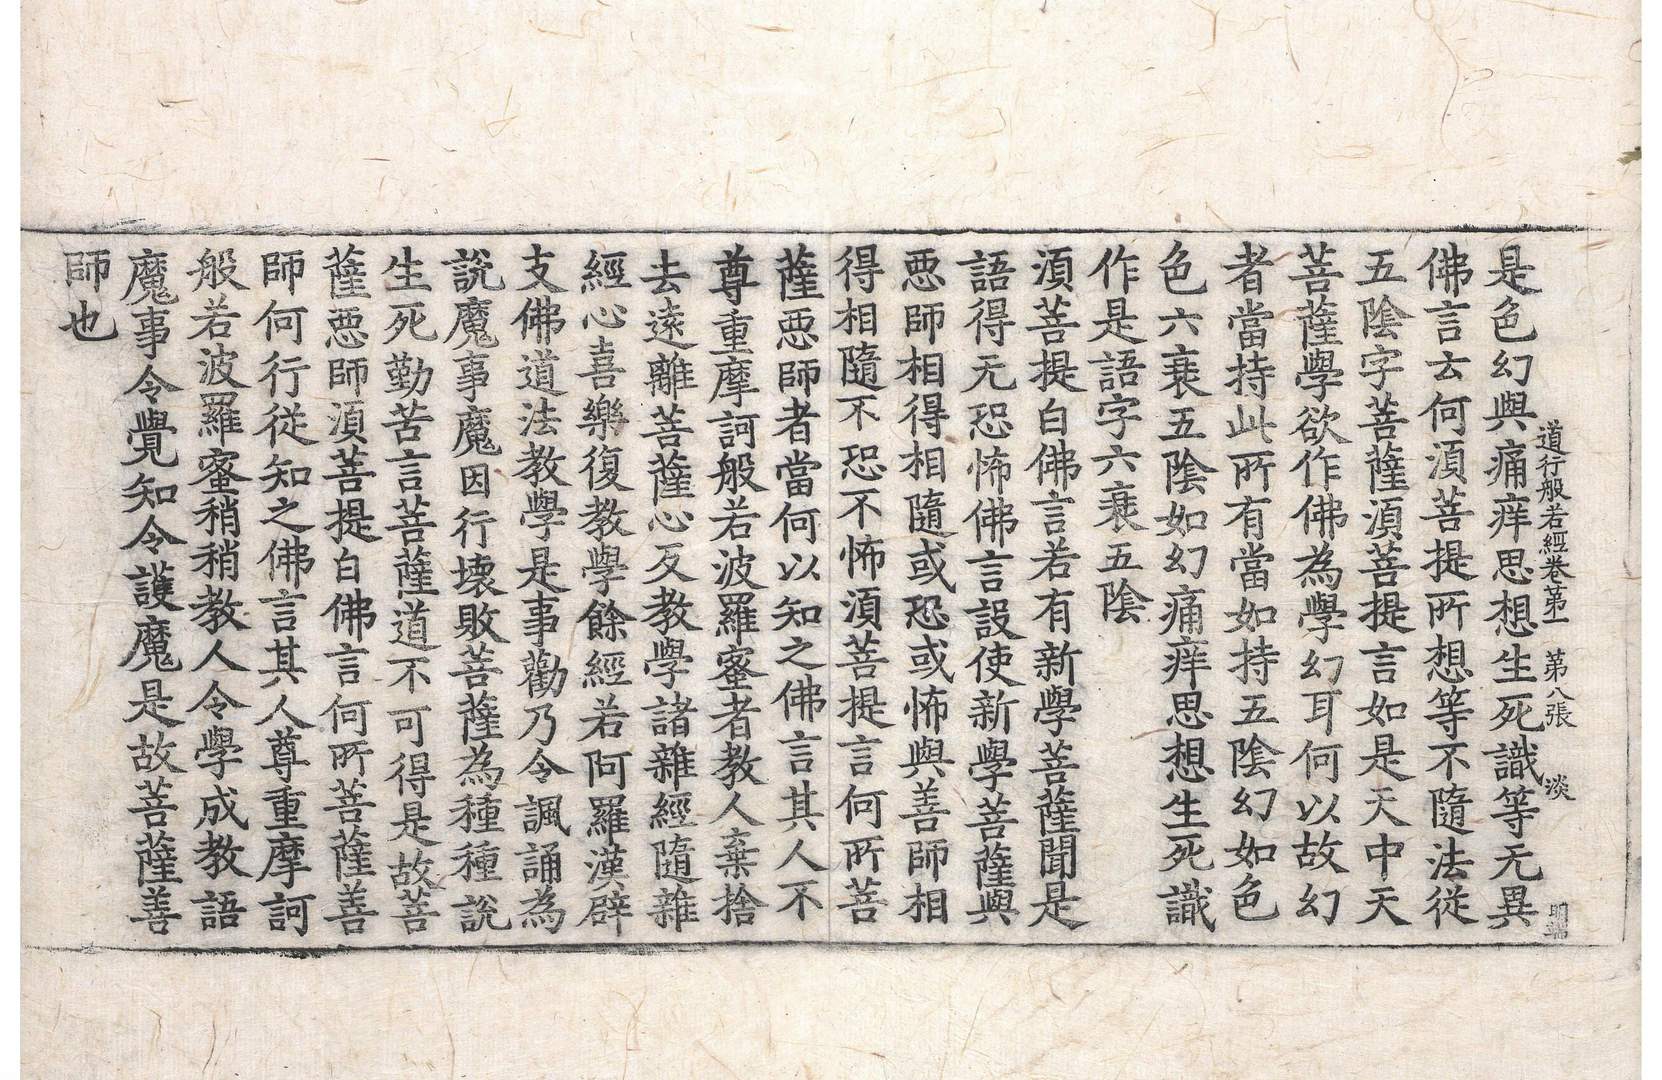 道行般若經卷第一 第八張 淡
明端
是色幻與痛痒思想生死識等无異
佛言云何湏菩提所想等不隨法從
五陰字菩薩湏菩提言如是天中天
菩薩學欲作佛為學幻耳何以故幻
者當持此所有當如持五陰幻如色
色六衰五陰如幻痛痒思想生死識
作是語字六衰五陰
湏菩提白佛言若有新學菩薩聞是
語得无恐怖佛言設使新學菩薩與
惡師相得相隨或恐或怖與善師相
得相隨不恐不怖湏菩提言何所菩
薩惡師者當何以知之佛言其人不
尊重摩訶般若波羅蜜者教人棄捨
去遠離菩薩心反教學諸雜經隨雜
經心喜樂復教學餘經若阿羅漢辟
支佛道法教學是事勸乃令諷誦為
說魔事魔因行壞敗菩薩為種種說
生死勤苦言菩薩道不可得是故菩
薩惡師湏菩提白佛言何所菩薩善
師何行從知之佛言其人尊重摩訶
般若波羅蜜稍稍教人令學成教語
魔事令覺知令護魔是故菩薩善
師也